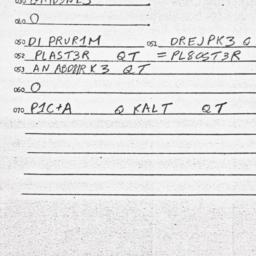 040 O
050 DI PRUR1M 051 DREJPK3 O
052 PLAST3R QT = PL8OST3R
053 AN ABDPRK3 QT
060 O
070 P1C+A Q KALT QT